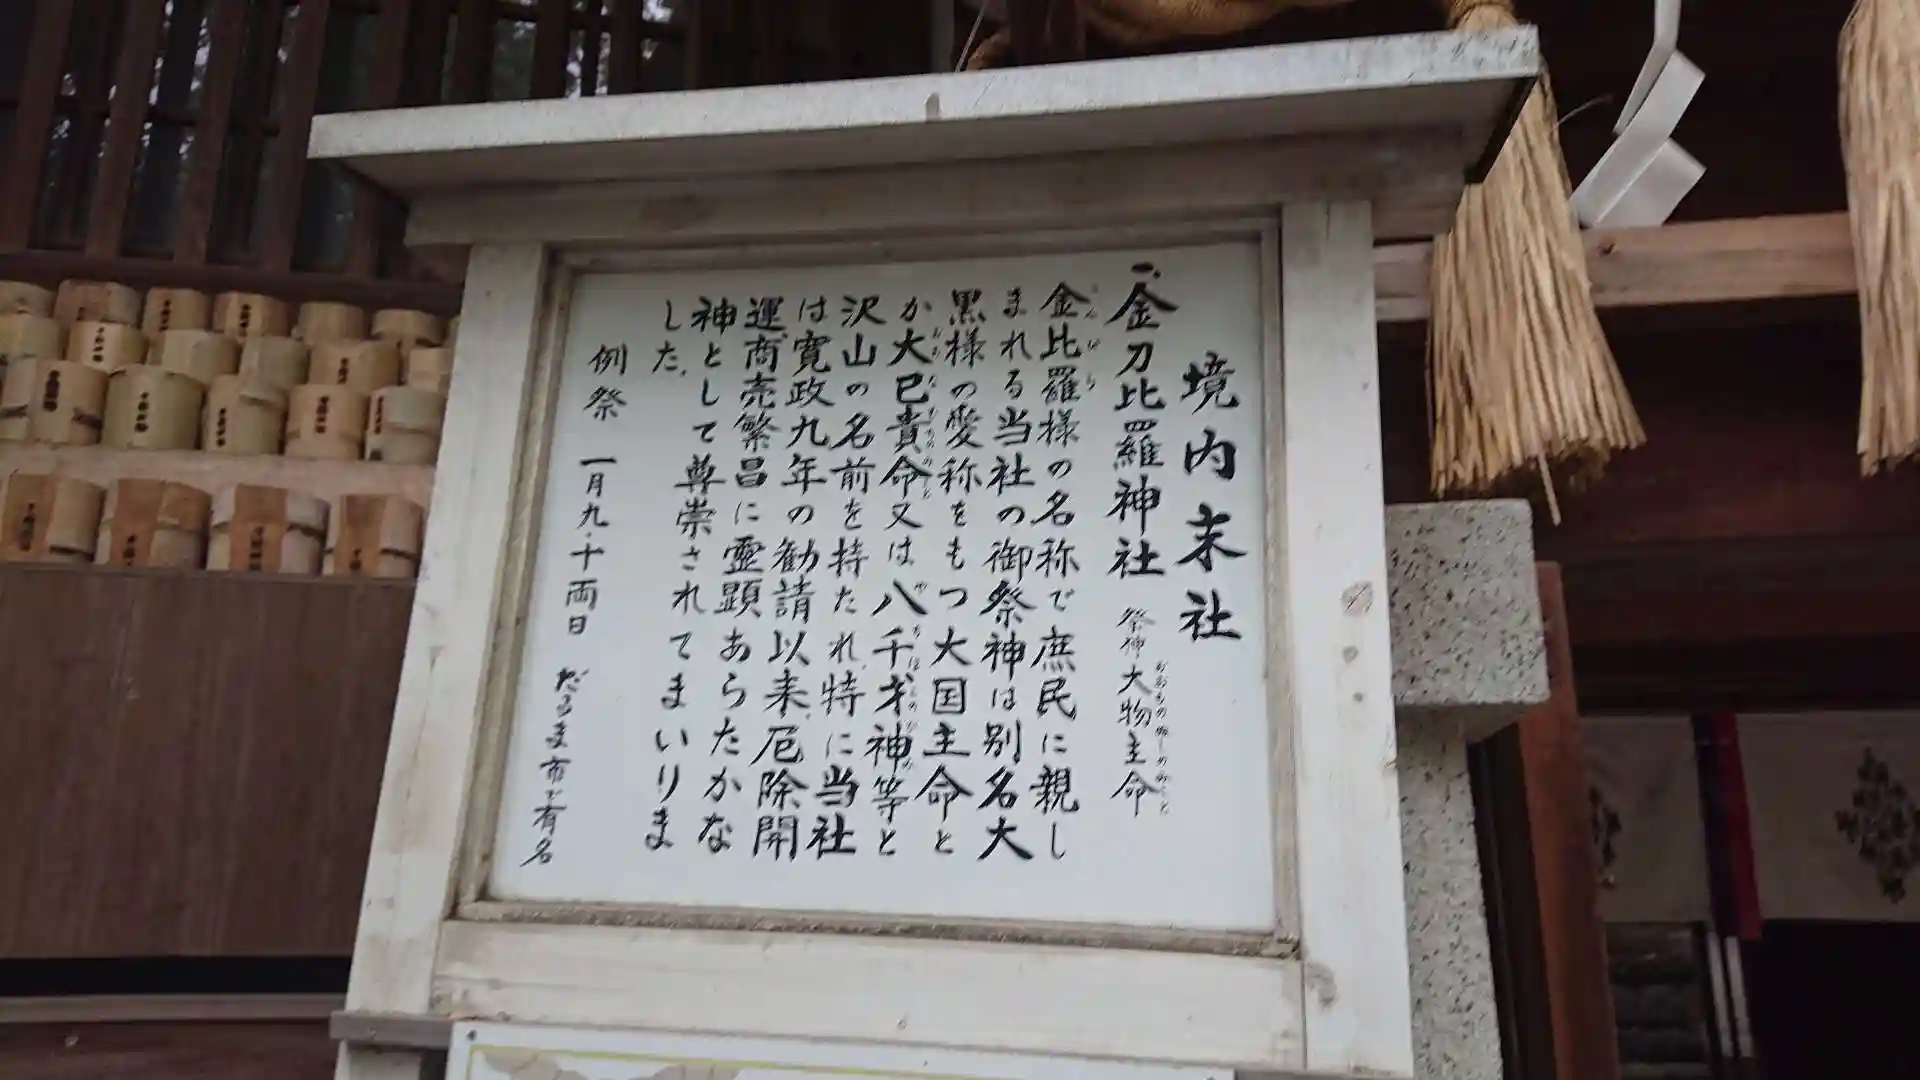 境内末社
一、金刀比羅神社 祭神 大物主命
おおものぬしのみこと
金比羅様の名称で庶民に親し
こんぴら
まれる当社の御祭神は別名大
黒様の愛称をもつ大国主命と
か大巳貴命又は八千矛神等と
おおなむちのみこと やちほこのかみ
沢山の名前を持たれ、特に当社
は寛政九年の勧請以来、厄除開
運商売繁昌に霊顕あらたかな
神として尊崇されてまいりま
した。
例祭 一月九・十両日 だるま市で有名